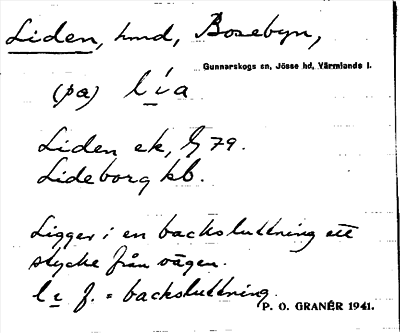 Liden, hmd, Bosebyn,
Gunnarskogs sn, Jösse hd, Värmlands l.
(pa) lí̱a
Liden ek, G 79.
Lideborg kb.
Ligger i en backsluttning ett
stycke från vägen.
f. = backsluttning.
P. O. GRANÉR 1941.